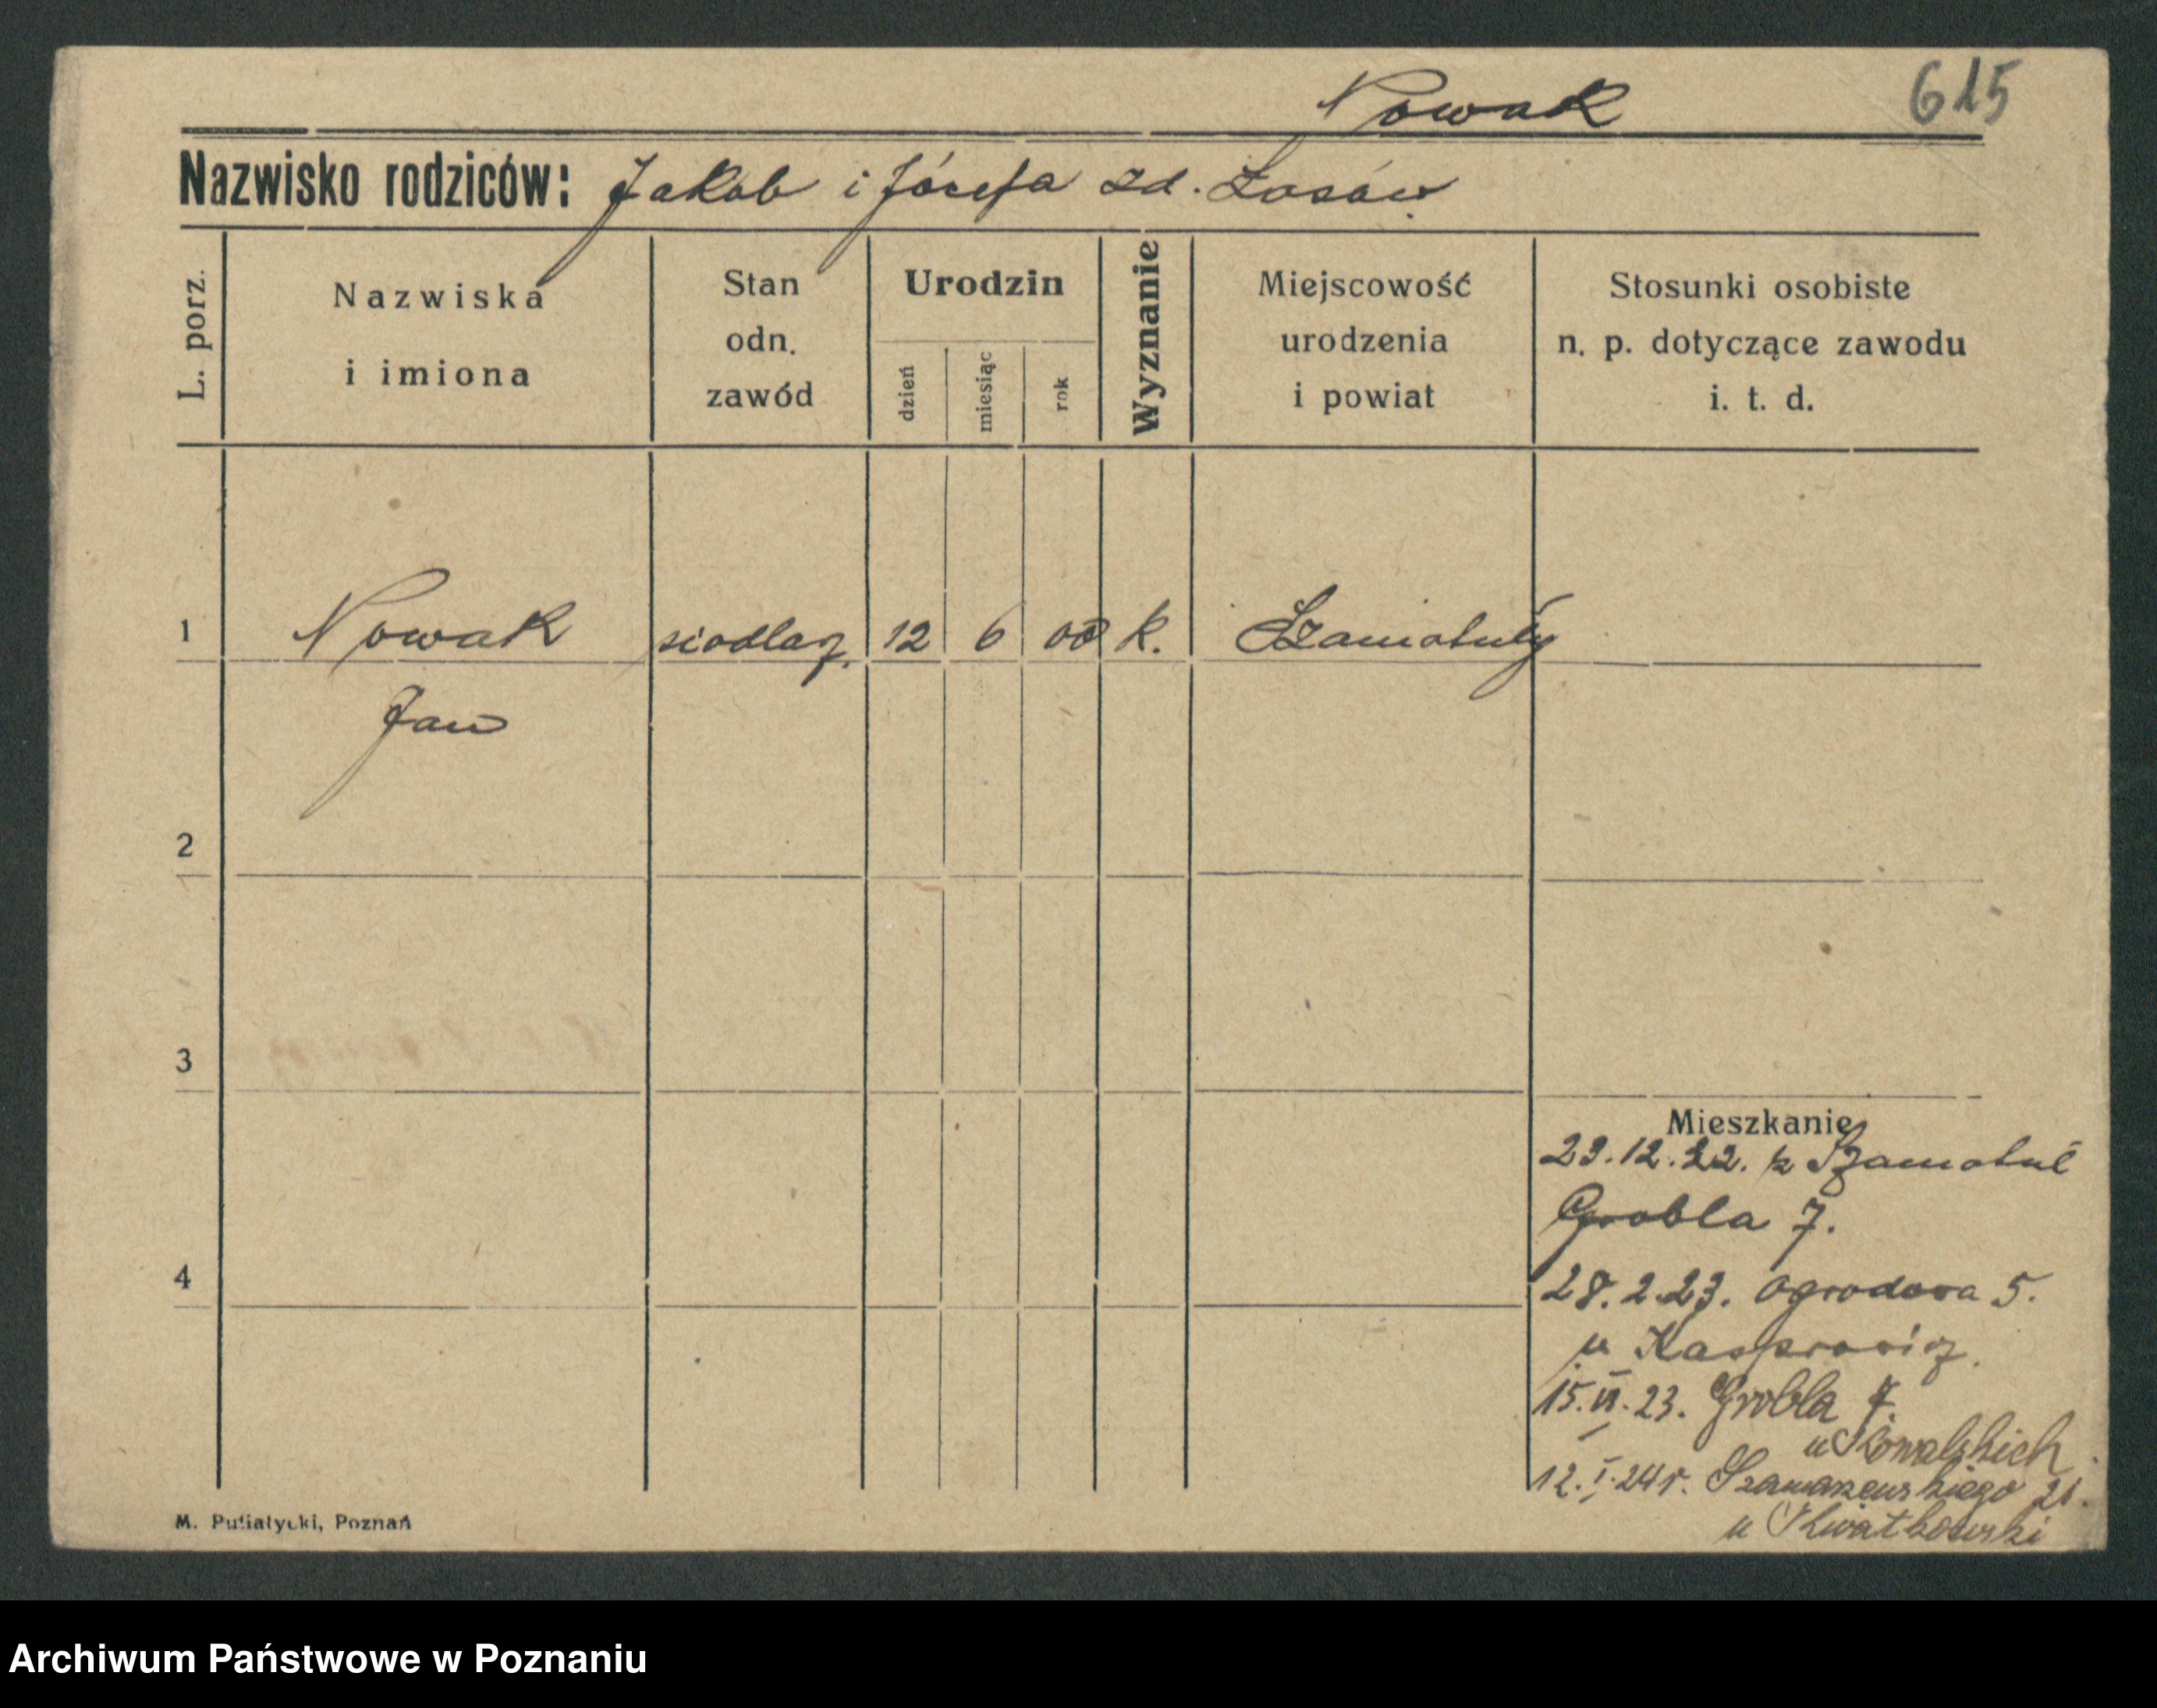 Nowak 615
Nazwisko rodziców: Jakób i Józefa zd. Łosów
L. porz.
Nazwiska
i imiona
Stan
odn.
zawód
Urodzin
dzień
miesiąc
rok
Wyznanie
Miejscowość
urodzenia
i powiat
Stosunki osobiste
n. p. dotyczące zawodu
i. t. d.
1 Nowak siodlarz. 12 6 00 k. Szamotuły
Jan
2
3
Mieszkanie
23.12.22. z Szamotuł
Grobla 7.
4
28.2.23. Ogrodowa 5.
u Kasprowicz.
15.VI.23. Grobla 7.
u Kowalskich
12.I.24r. Szamarzewskiego 21.
u Kwiatkowski
M. Putiatycki, Poznań
Archiwum Państwowe w Poznaniu